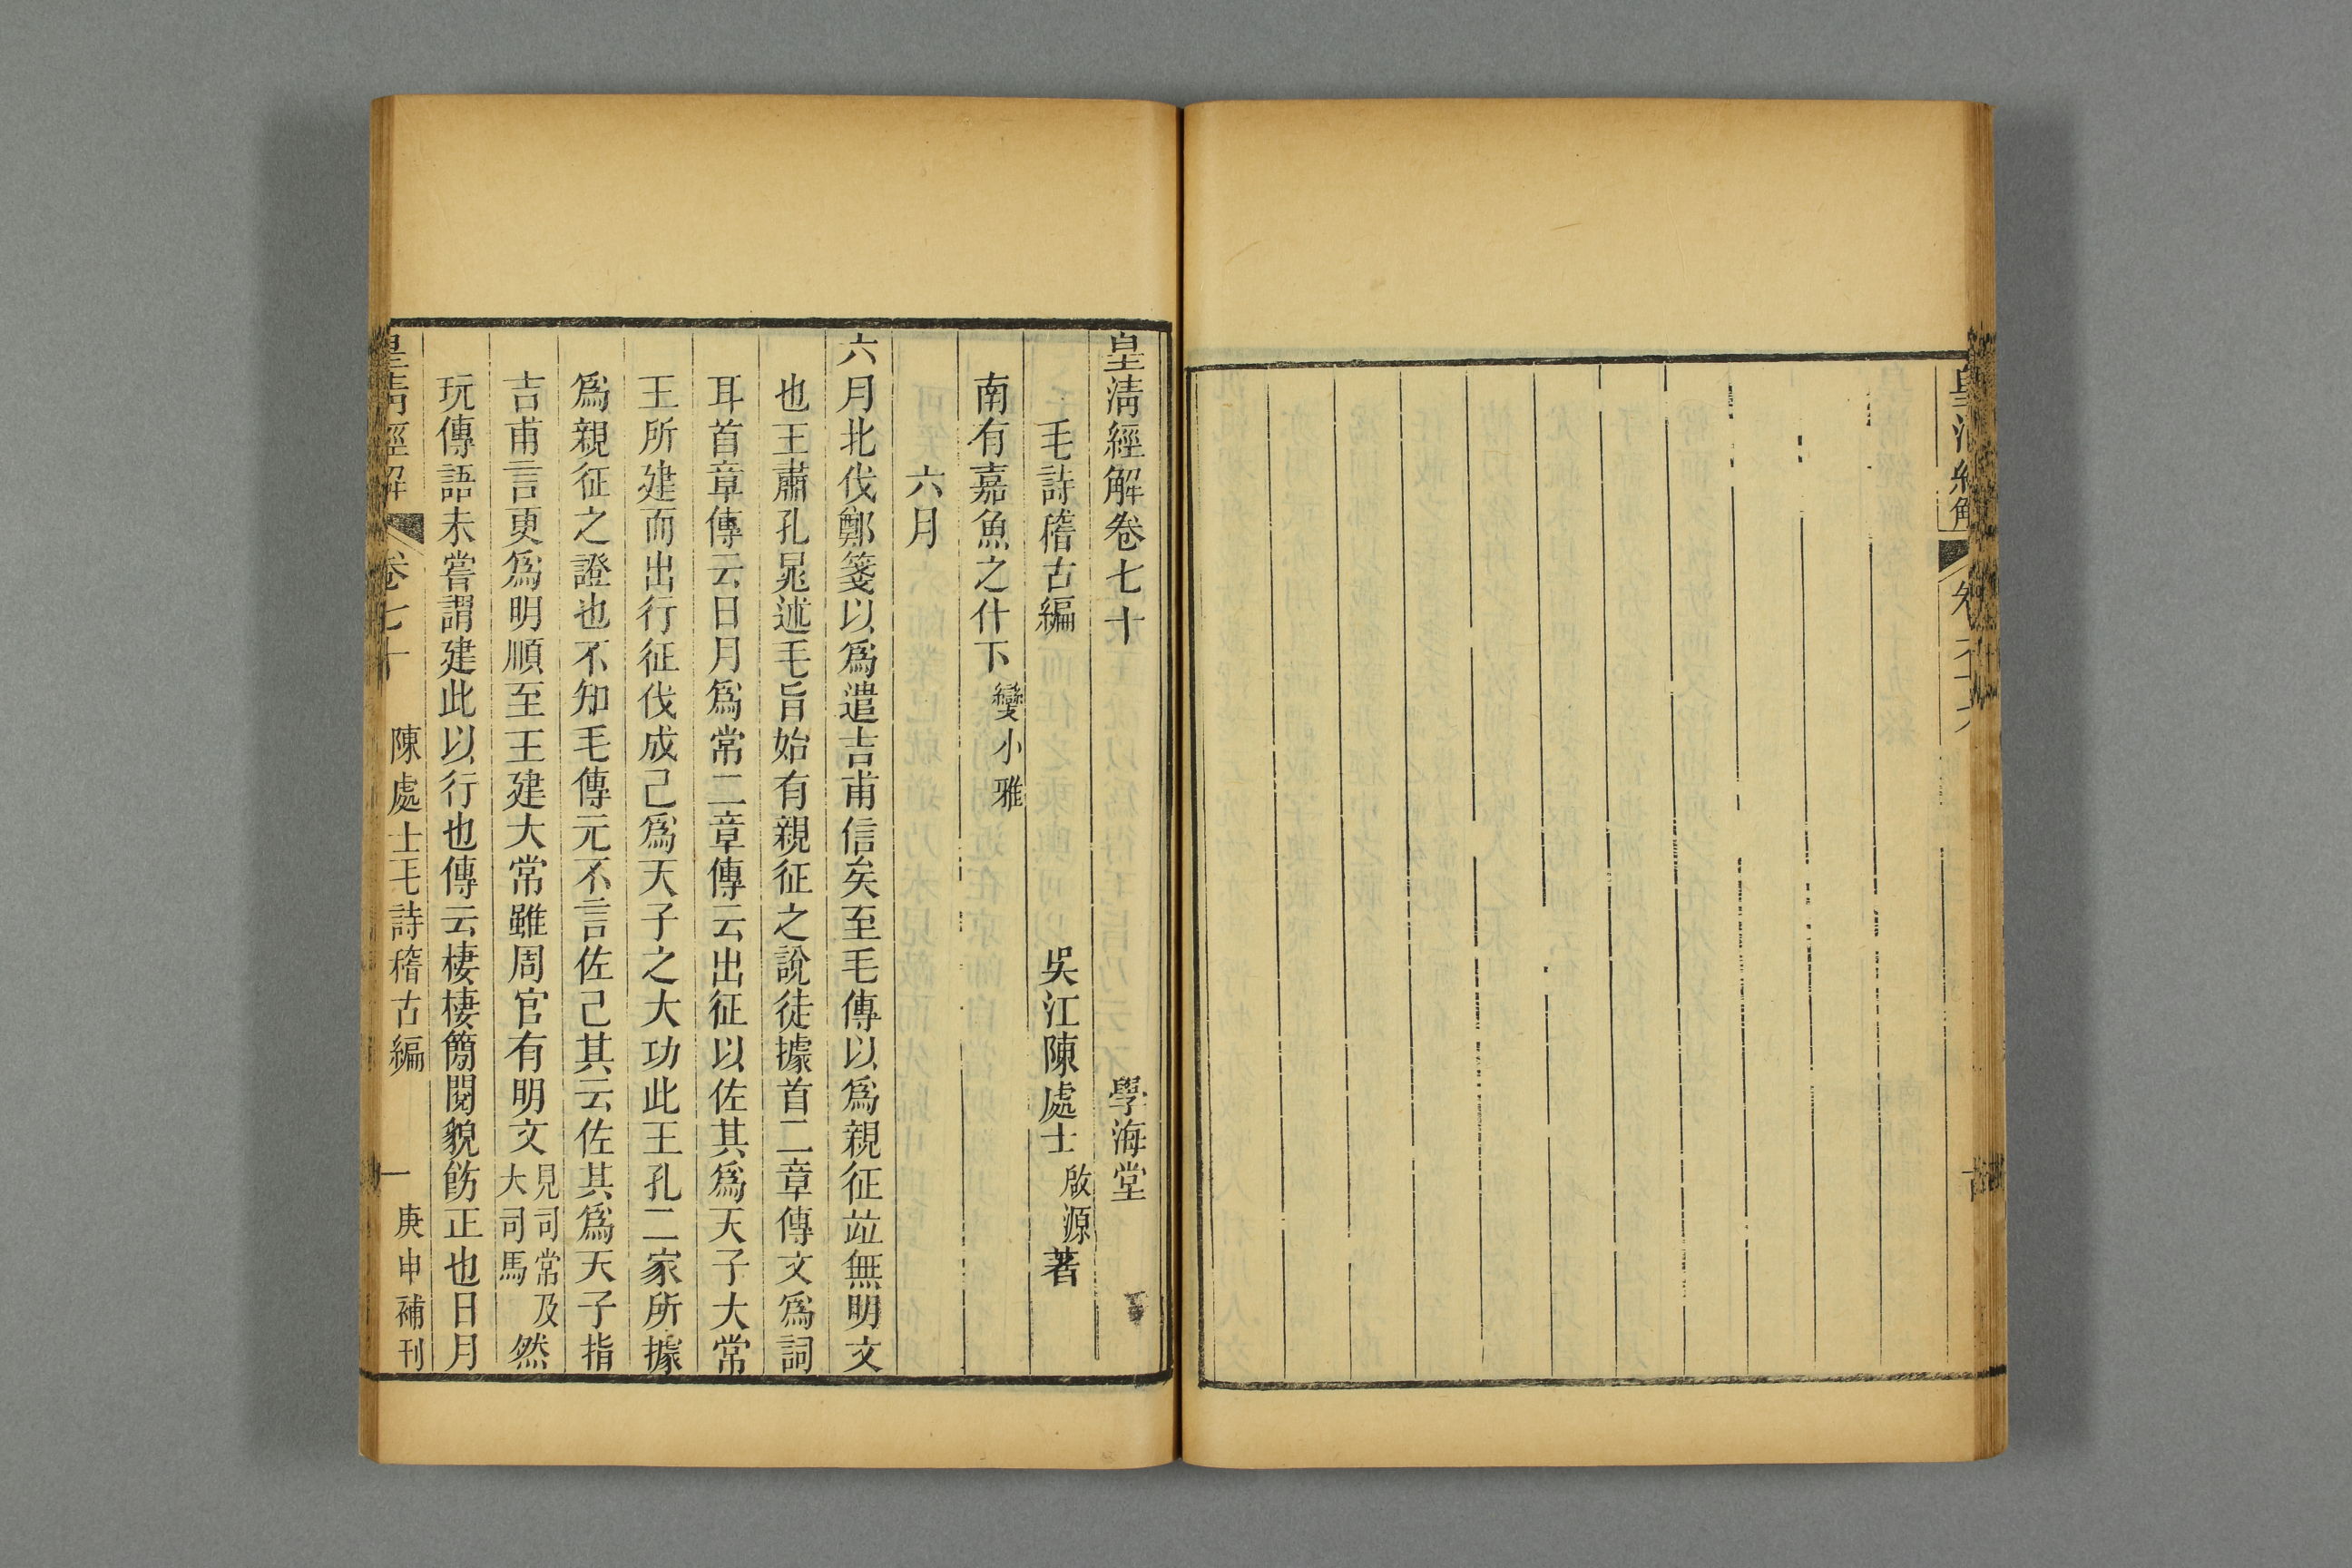 皇清經解卷七十 學海堂
毛詩稽古編 吳江陳處士啟源著
南有嘉魚之什下 變小雅
六月
六月北伐鄭箋以爲遣吉甫信矣至毛傳以爲親征竝無明文
也王肅孔晁述毛旨始有親征之說徒據首二章傳文爲詞
耳首章傳云日月爲常二章傳云出征以佐其爲天子大常
王所建而出行征伐成己爲天子之大功此王孔二家所據
爲親征之證也不知毛傳元不言佐己其云佐其爲天子指
吉甫言更爲明順至王建大常雖周官有明文見司常及大司馬然
玩傳語未嘗謂建此以行也傳云棲棲簡閱貌飭正也日月
皇清經解 卷七十 陳處士毛詩稽古編 一 庚申補刊